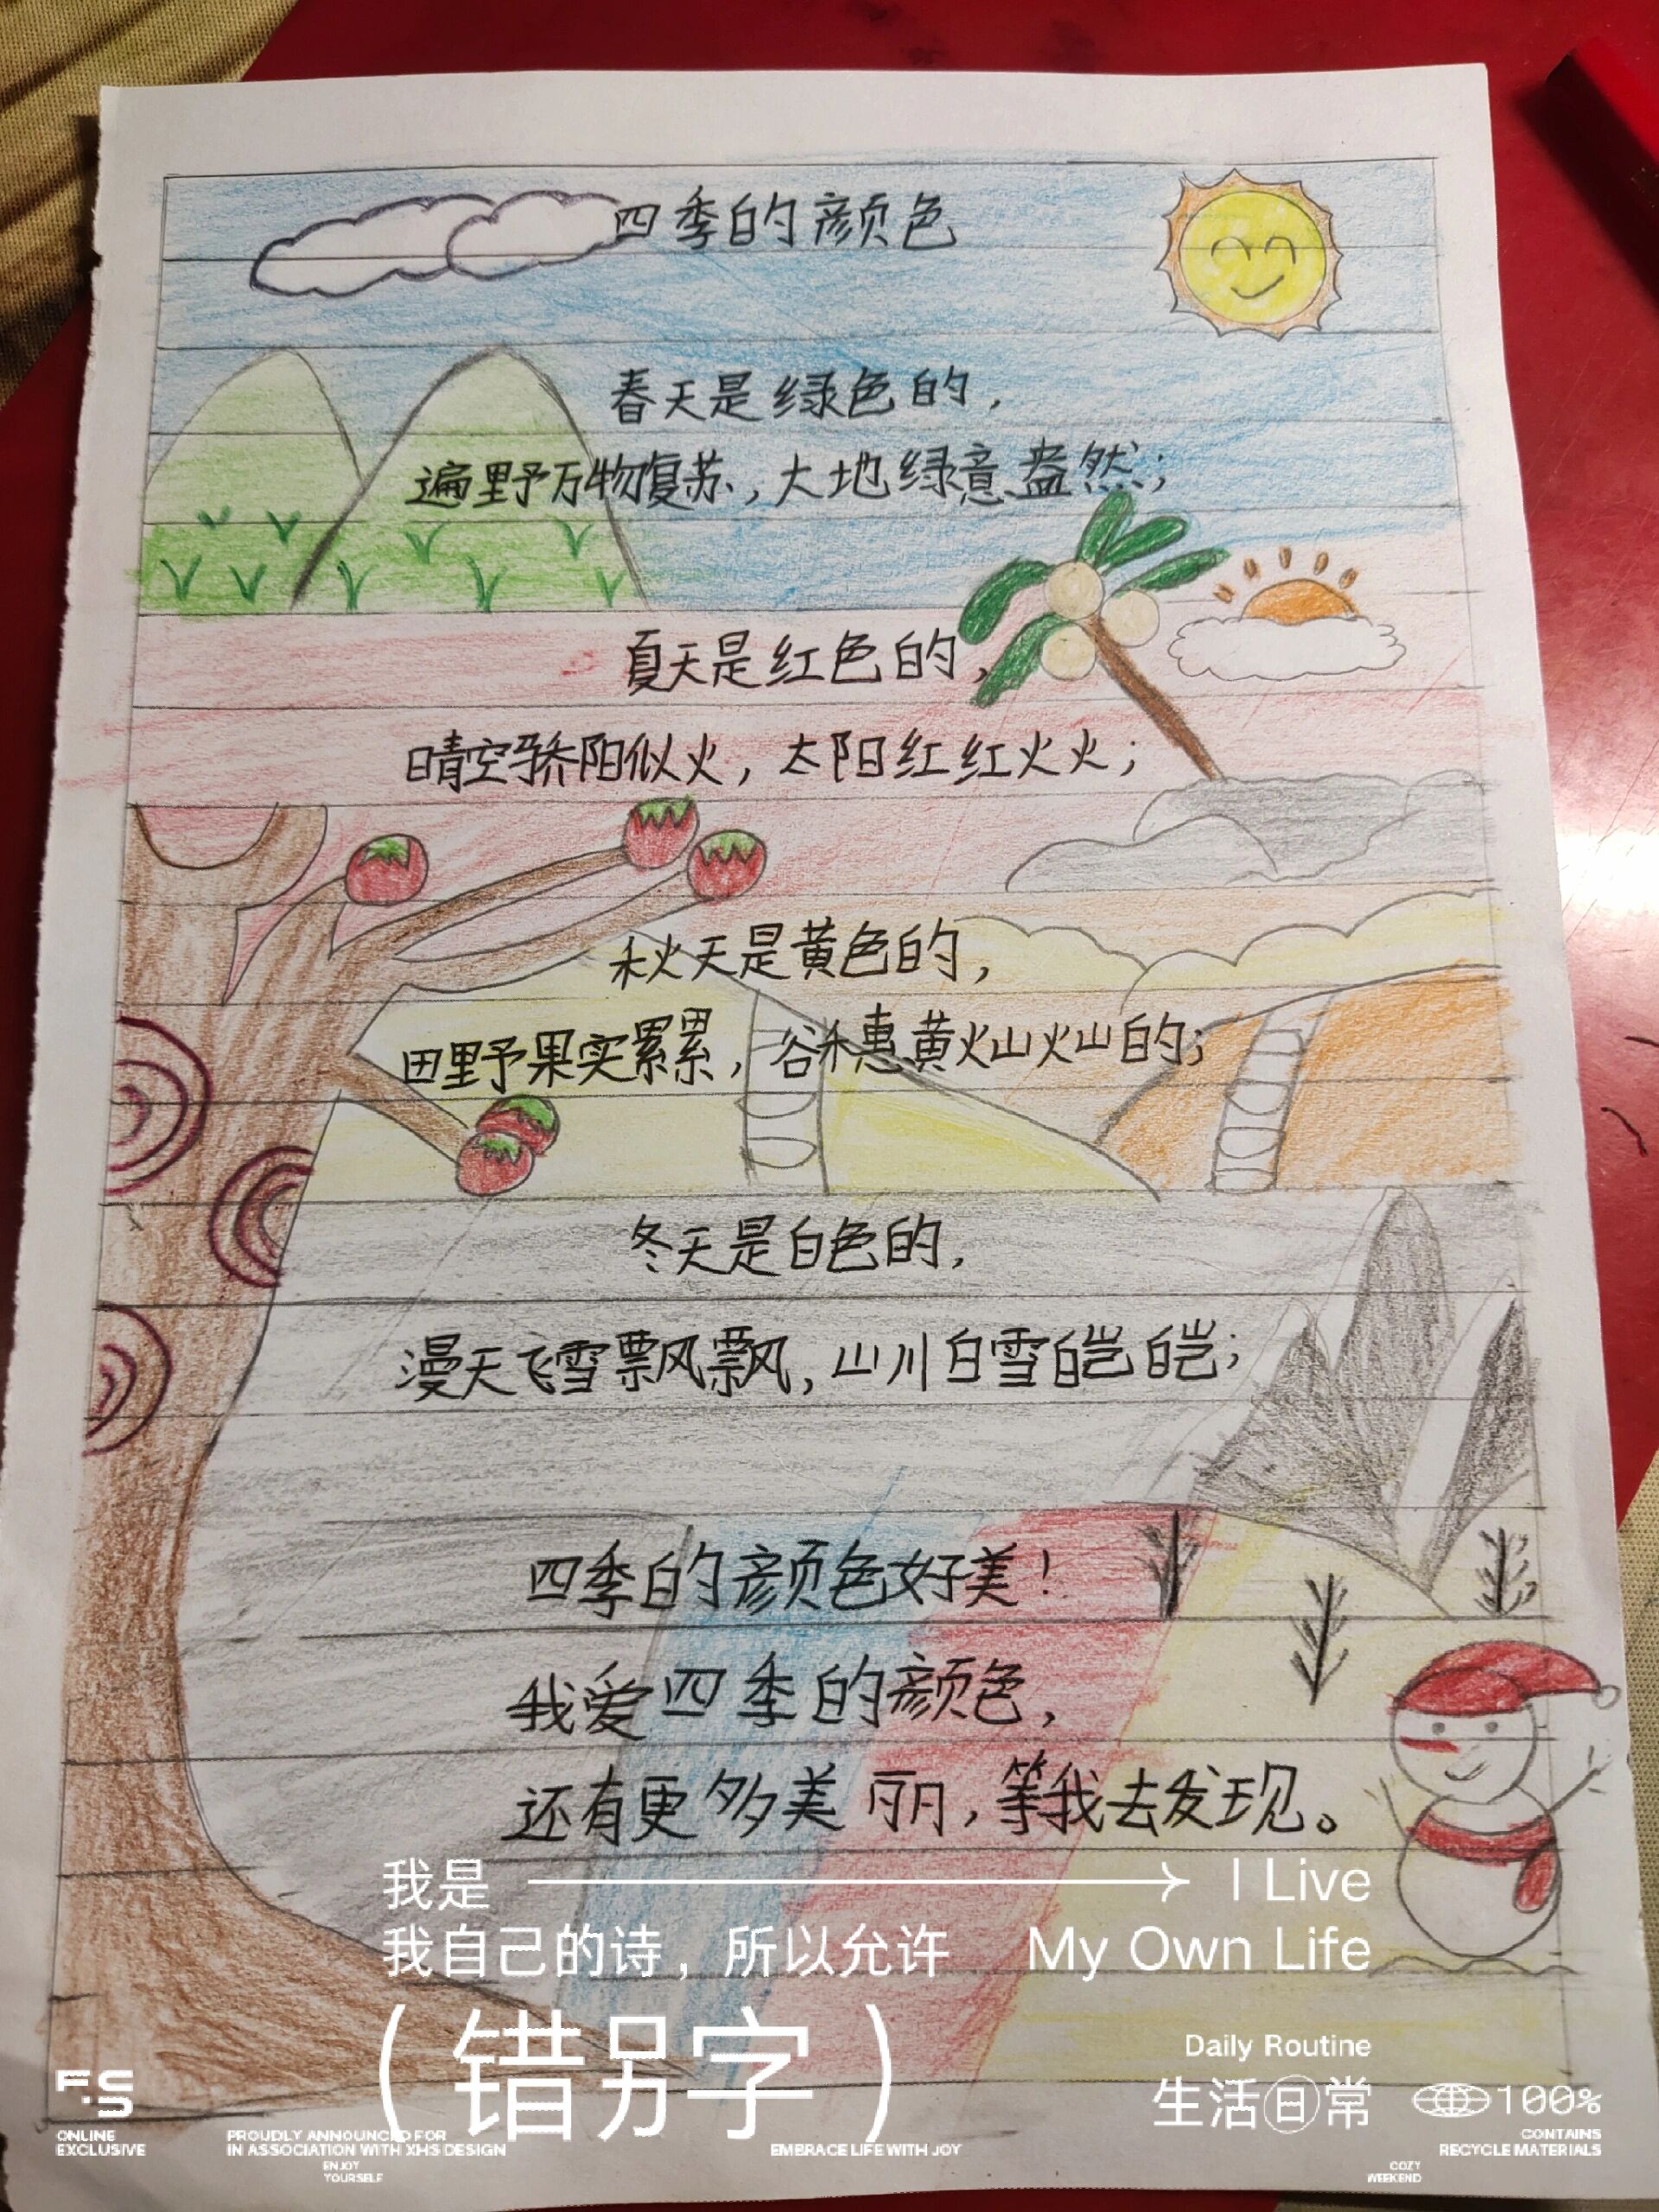 四季的颜色
春天是绿色的，
遍野万物復苏，大地绿意盎然；
夏天是红色的，
晴空骄阳似火，太阳红红火火；
秋天是黄色的，
田野果实累累，谷穗黄灿灿的；
冬天是白色的，
漫天飞雪飘飘，山川白雪皑皑；
四季的颜色好美！
我爱四季的颜色，
还有更多美丽，等我去发现。
我是 I Live
我自己的诗，所以允许 My Own Life
（错另字）
Daily Routine
生活日常
F.S
100%
ONLINE
EXCLUSIVE
PROUDLY ANNOUNCED FOR
IN ASSOCIATION WITH XHS DESIGN
ENJOY
YOURSELF
EMBRACE LIFE WITH JOY
CONTAINS
RECYCLE MATERIALS
COZY
WEEKEND